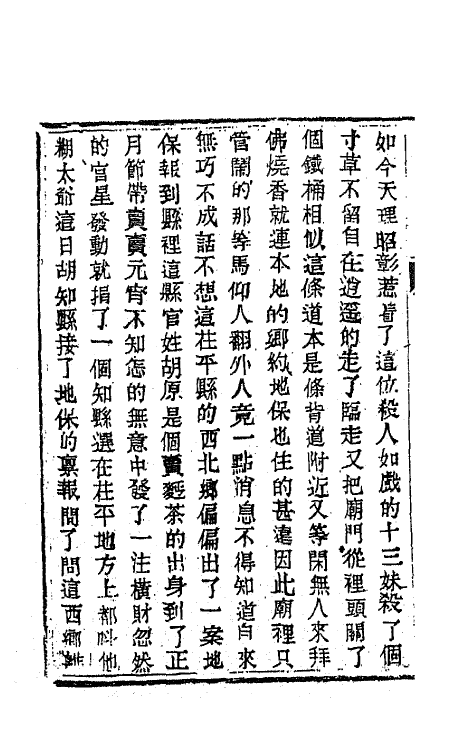 如今天理昭彰惹着了這位殺人如戲的十三妹殺了個
寸草不留自在逍遥的走了臨走又把廟門從裡頭關了
個鐵桶相似這條道本是條背道附近又等閑無人來拜
佛燒香就連本地的鄉約地保也住的甚遠因此廟裡只
管鬧的那等馬仰人翻外人竟一點消息不得知道自來
無巧不成話不想這茌平縣的西北鄉偏偏出了一案地
保報到縣裡這縣官姓胡原是個賣麪茶的出身到了正
月節帶賣賣元宵不知怎的無意中發了一注橫財忽然
的官星發動就捐了一個知縣選在茌平地方上都呌他
糊太爺這日胡知縣接了地保的稟報問了問這西鄉